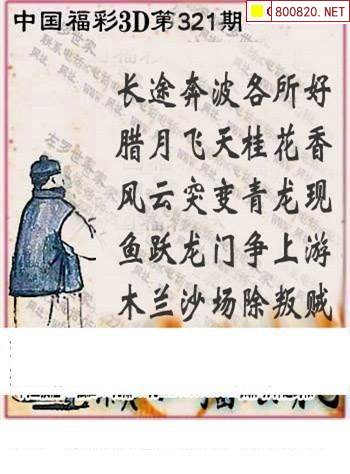 中国福彩3D第321期
800820.NET
长途奔波各所好
腊月飞天桂花香
风云突变青龙现
鱼跃龙门争上游
木兰沙场除叛贼